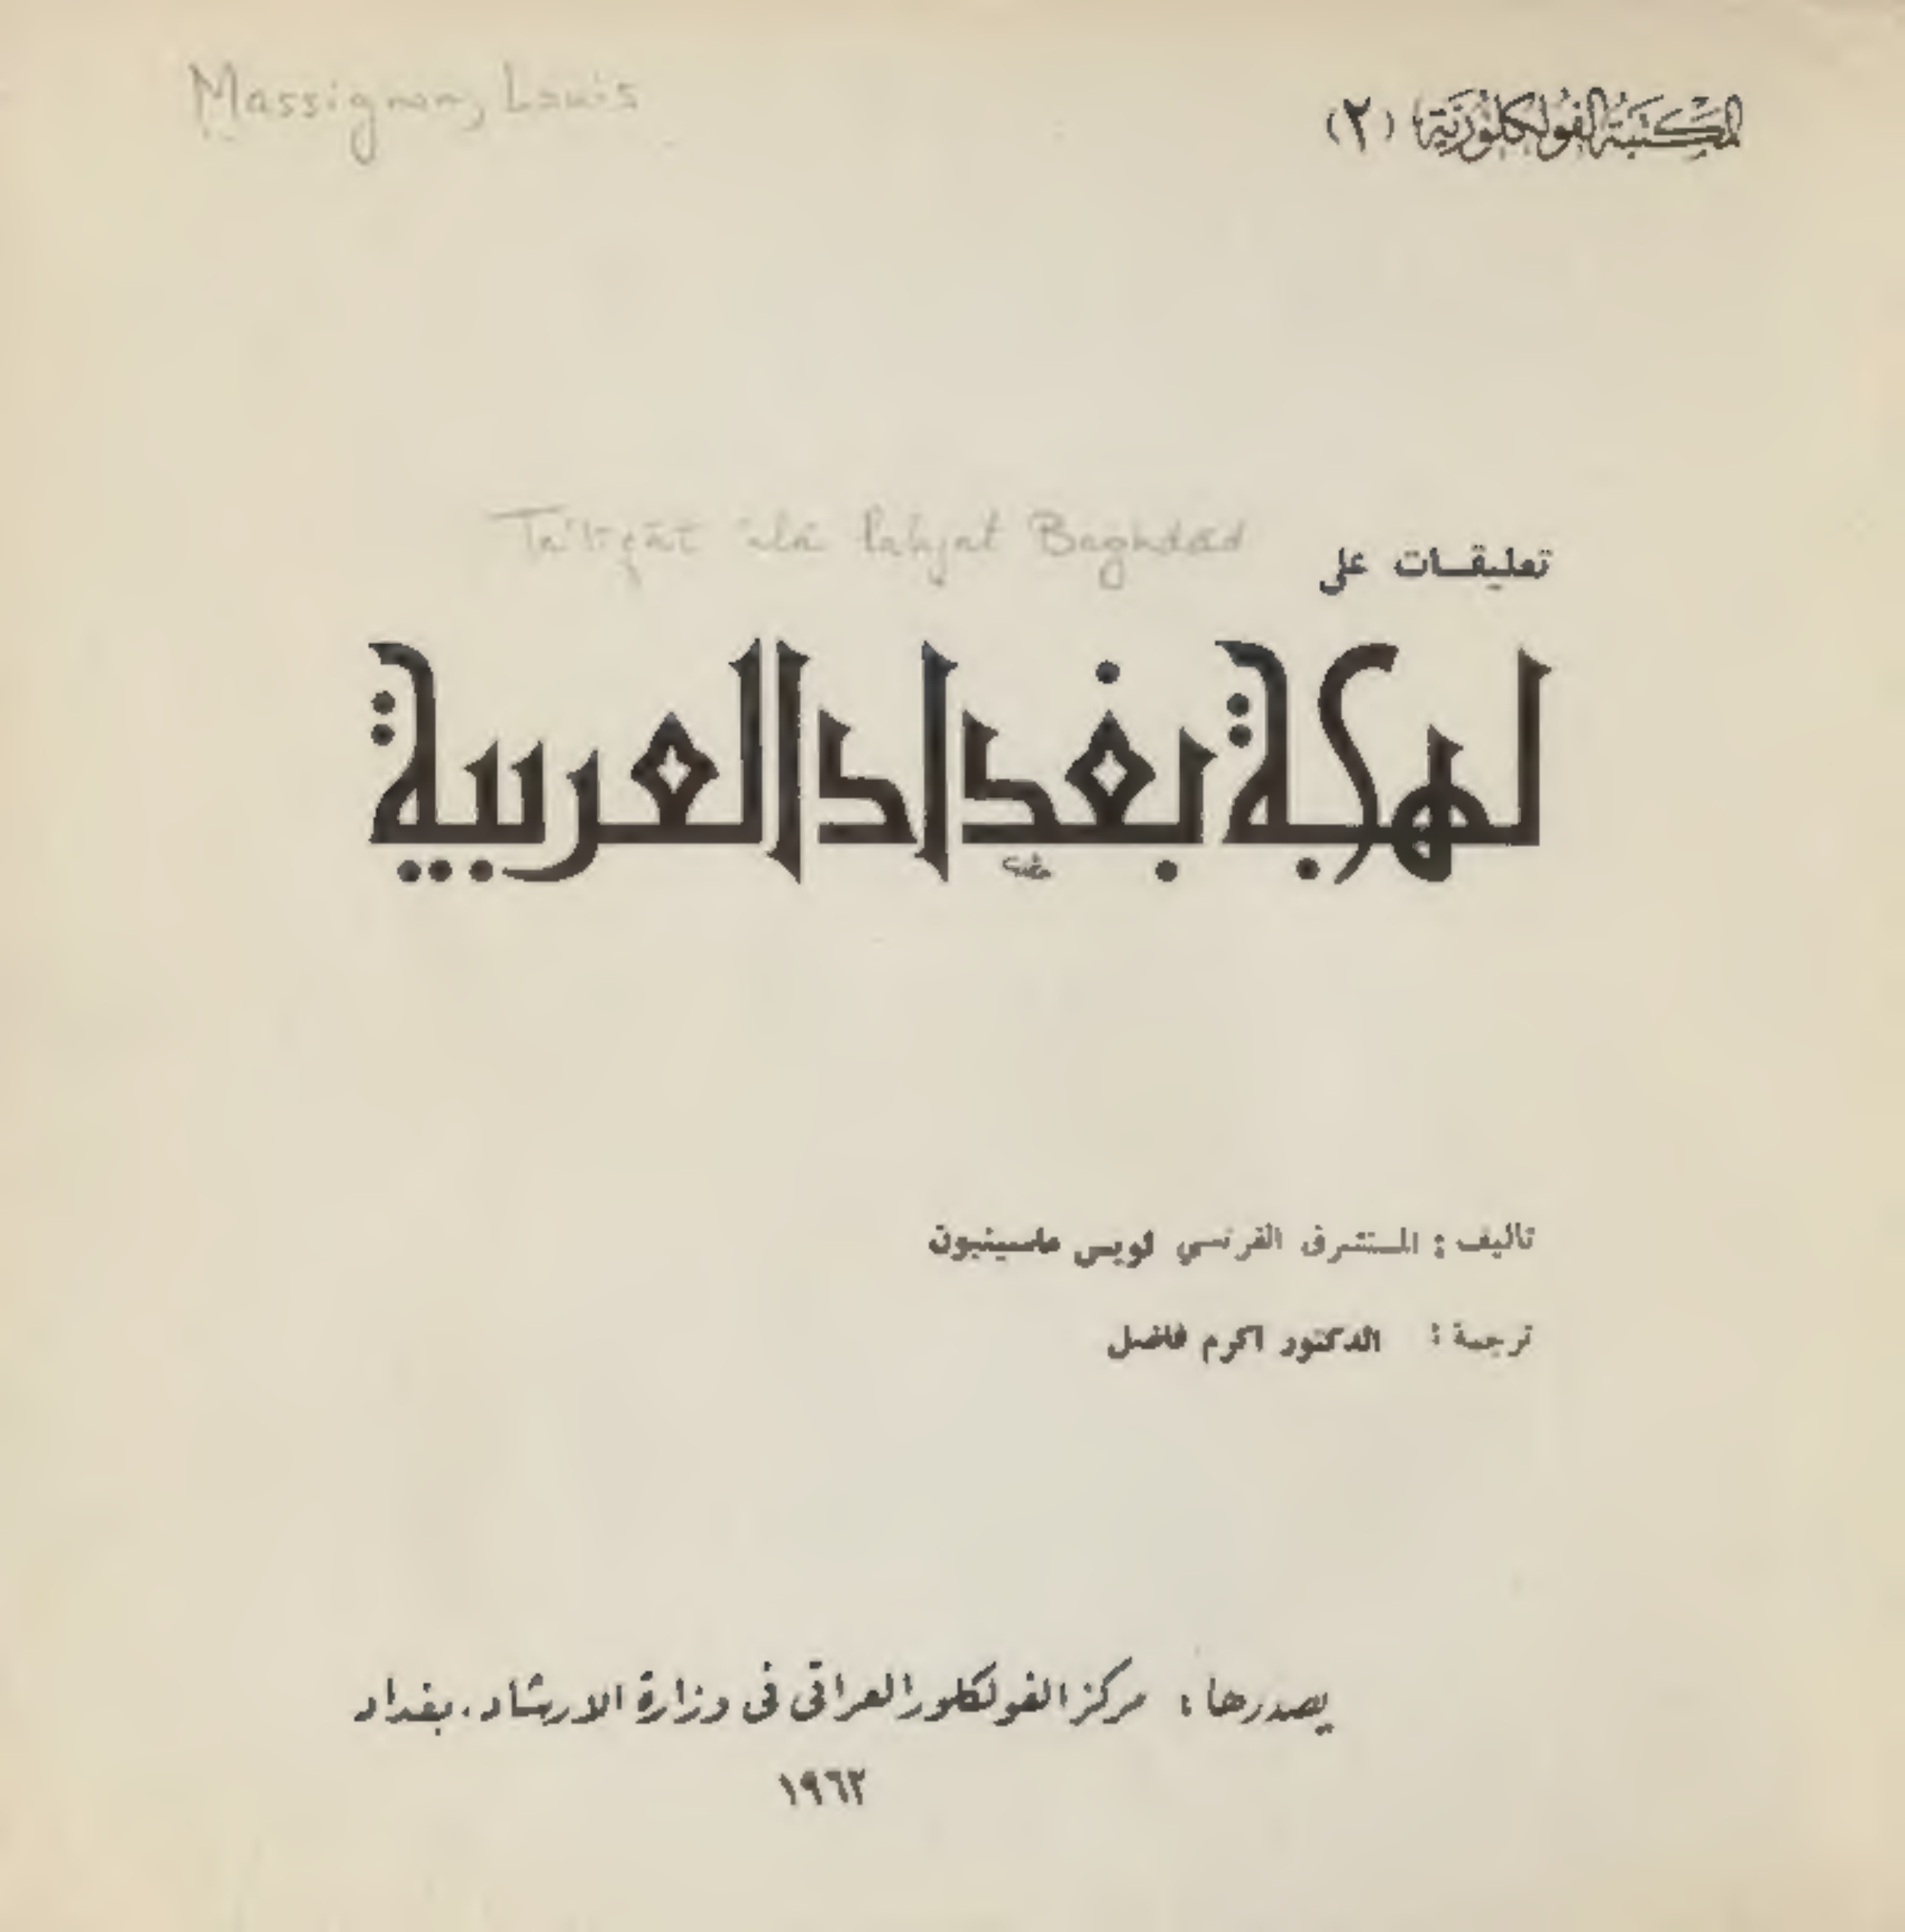 Massignon, Louis
المكتبة الفولكلورية (٢)
Ta'līqāt 'alá lahjat Baghdād
تعليقات على
لهجة بغداد العربية
تأليف : المستشرق الفرنسي لويس ماسينيون
ترجمة : الدكتور اكرم فاضل
يصدرها : مركز الفولكلور العراقي في وزارة الارشاد . بغداد
١٩٦٢